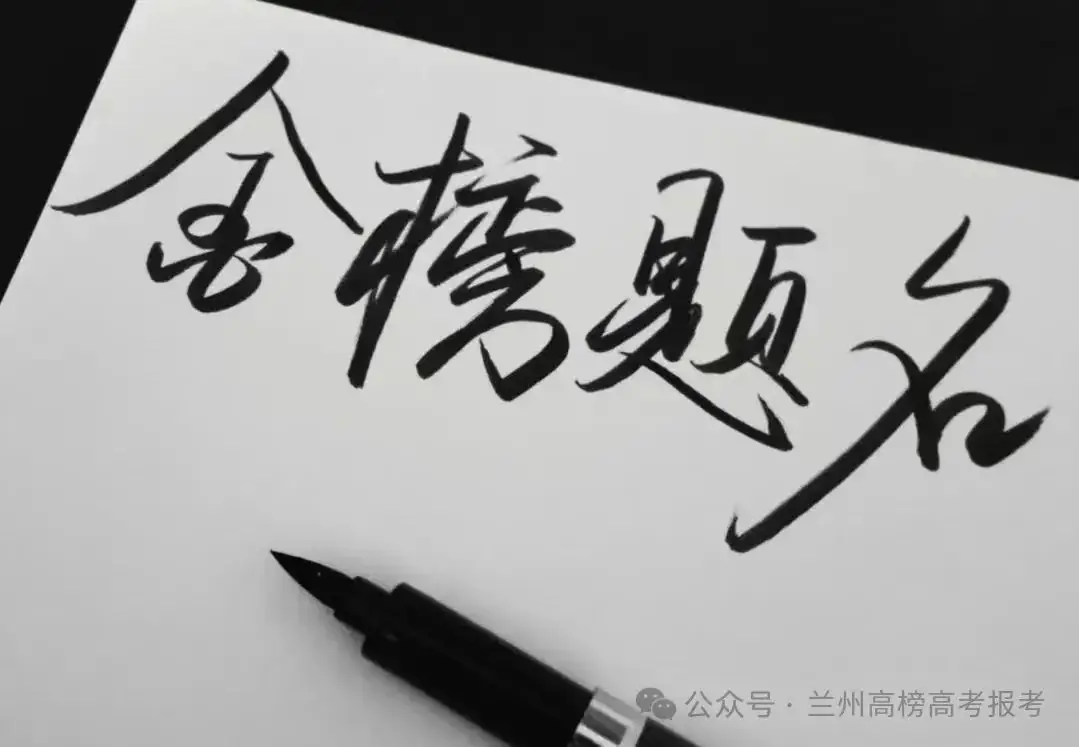 金榜题名
公众号·兰州高榜高考报考